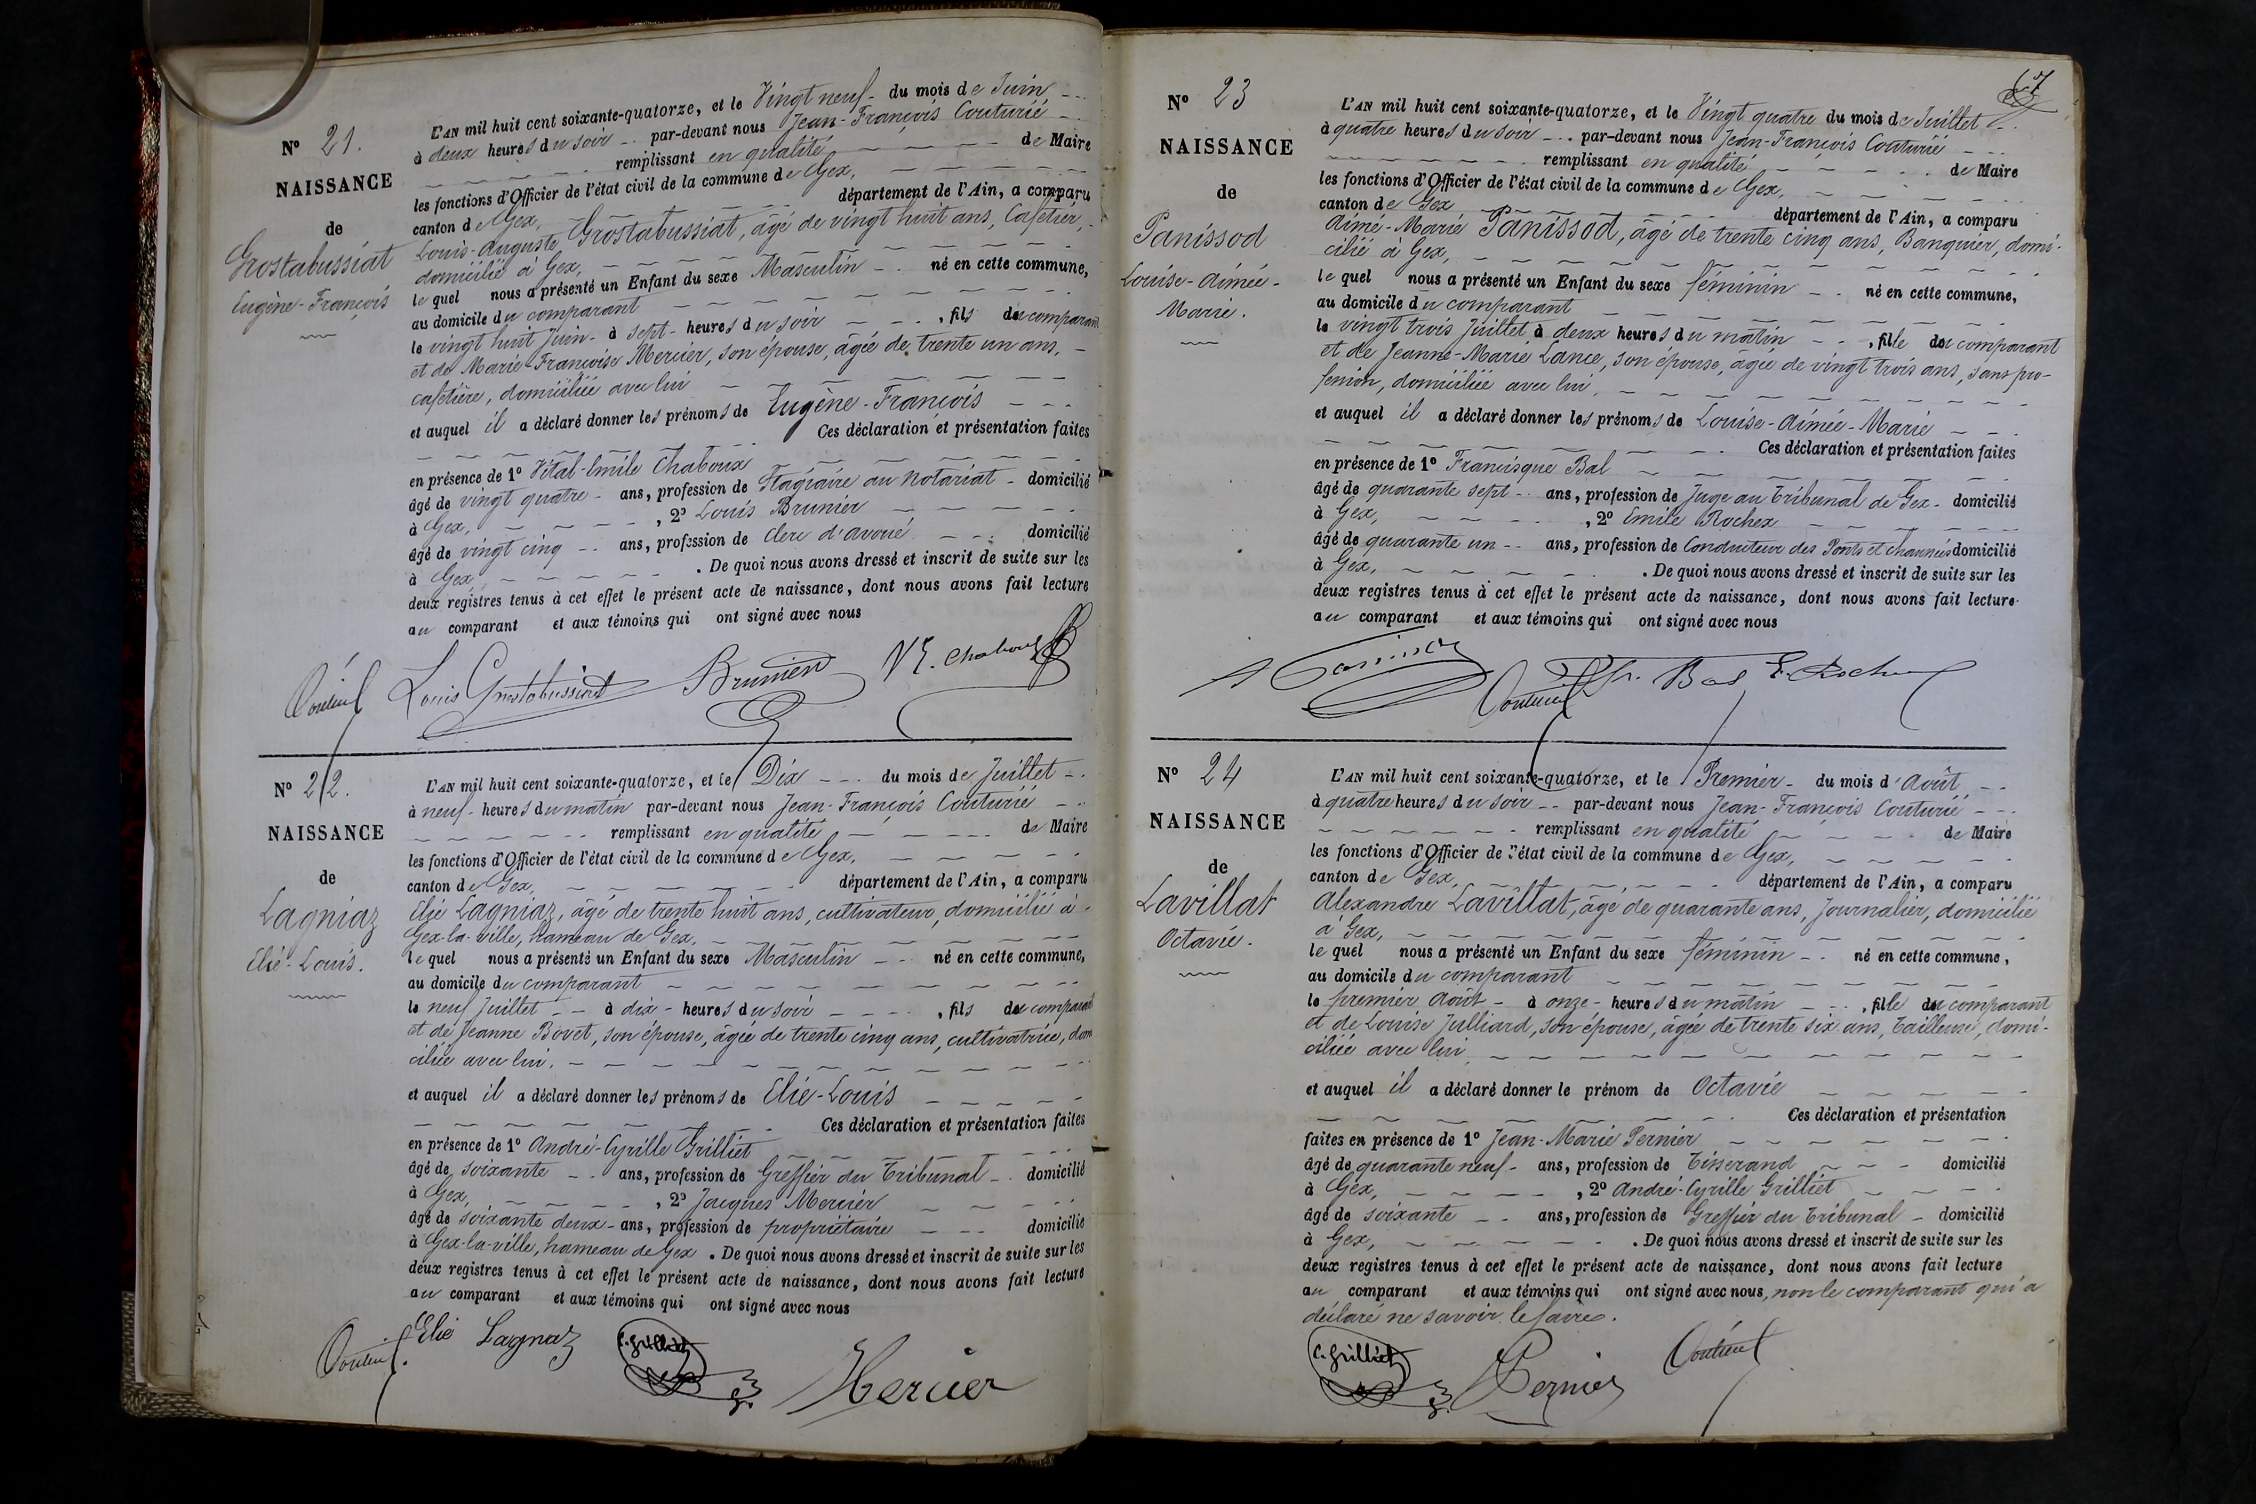 N° 21.
NAISSANCE
de
Grostabussiat
Eugène-François
L'AN mil huit cent soixante-quatorze, et le Vingt neuf du mois de Juin
à deux heures du soir par-devant nous Jean-François Couturié
remplissant en qualité de Maire
les fonctions d'Officier de l'état civil de la commune de Gex,
canton de Gex, département de l'Ain, a comparu
Louis-Auguste Grostabussiat, âgé de vingt huit ans, Cafetier,
domicilié à Gex,
le quel nous a présenté un Enfant du sexe Masculin né en cette commune,
au domicile du comparant
le vingt huit Juin à sept heures du soir , fils du comparant
et de Marie-Françoise Mercier, son épouse, âgée de trente un ans,
cafetière, domiciliée avec lui
et auquel il a déclaré donner les prénoms de Eugène-François
Ces déclaration et présentation faites
en présence de 1° Vital-Emile Chaboux
âgé de vingt quatre ans, profession de Stagiaire au Notariat domicilié
à Gex, , 2° Louis Brunier
âgé de vingt cinq ans, profession de Clerc d'avoué domicilié
à Gex . De quoi nous avons dressé et inscrit de suite sur les
deux registres tenus à cet effet le présent acte de naissance, dont nous avons fait lecture
au comparant et aux témoins qui ont signé avec nous
Couturié Louis Grostabussiat Brunier V E. Chaboux
N° 22.
NAISSANCE
de
Lagniaz
Elie-Louis.
L'AN mil huit cent soixante-quatorze, et le Dix du mois de Juillet
à neuf heures du matin par-devant nous Jean-François Couturié
remplissant en qualité de Maire
les fonctions d'Officier de l'état civil de la commune de Gex,
canton de Gex, département de l'Ain, a comparu
Elie Lagniaz, âgé de trente huit ans, cultivateur, domicilié à
Gex-la-ville, hameau de Gex,
le quel nous a présenté un Enfant du sexe Masculin né en cette commune,
au domicile du comparant
le neuf Juillet à dix heures du soir , fils du comparant
et de Jeanne Bovet, son épouse, âgée de trente cinq ans, cultivatrice, domi
ciliée avec lui.
et auquel il a déclaré donner les prénoms de Elie-Louis
Ces déclaration et présentation faites
en présence de 1° André-Cyrille Grilliet
âgé de soixante ans, profession de Greffier du Tribunal domicilié
à Gex, , 2° Jacques Mercier
âgé de soixante deux ans, profession de propriétaire domicilié
à Gex-la-ville, hameau de Gex . De quoi nous avons dressé et inscrit de suite sur les
deux registres tenus à cet effet le présent acte de naissance, dont nous avons fait lecture
au comparant et aux témoins qui ont signé avec nous
Couturié Elie Lagnaz C. Grilliet Mercier
N° 23
NAISSANCE
de
Panissod
Louise-Aimée-
Marie.
L'AN mil huit cent soixante-quatorze, et le Vingt quatre du mois de Juillet
à quatre heures du soir par-devant nous Jean-François Couturié
remplissant en qualité de Maire
les fonctions d'Officier de l'état civil de la commune de Gex,
canton de Gex département de l'Ain, a comparu
Aimé-Marie Panissod, âgé de trente cinq ans, Banquier, domi-
cilié à Gex,
le quel nous a présenté un Enfant du sexe féminin né en cette commune,
au domicile du comparant
le vingt trois Juillet à deux heures du matin , fille du comparant
et de Jeanne-Marie Lance, son épouse, âgée de vingt trois ans, sans pro-
fession, domiciliée avec lui,
et auquel il a déclaré donner les prénoms de Louise-Aimée-Marie
Ces déclaration et présentation faites
en présence de 1° Francisque Bal
âgé de quarante sept ans, profession de Juge au Tribunal de Gex domicilié
à Gex, , 2° Emile Rochex
âgé de quarante un ans, profession de Conducteur des Ponts et chaussées domicilié
à Gex, . De quoi nous avons dressé et inscrit de suite sur les
deux registres tenus à cet effet le présent acte de naissance, dont nous avons fait lecture
au comparant et aux témoins qui ont signé avec nous
Couturié Fr. Bal E. Rochex
N° 24
NAISSANCE
de
Lavillat
Octavie.
L'AN mil huit cent soixante-quatorze, et le Premier du mois d'Août
à quatre heures du soir par-devant nous Jean-François Couturié
remplissant en qualité de Maire
les fonctions d'Officier de l'état civil de la commune de Gex,
canton de Gex, département de l'Ain, a comparu
Alexandre Lavillat, âgé de quarante ans, Journalier, domicilié
à Gex,
le quel nous a présenté un Enfant du sexe féminin né en cette commune,
au domicile du comparant
le premier Août à onze heures du matin , fille du comparant
et de Louise Julliard, son épouse, âgée de trente six ans, tailleuse, domi-
ciliée avec lui
et auquel il a déclaré donner le prénom de Octavie
Ces déclaration et présentation
faites en présence de 1° Jean-Marie Pernier
âgé de quarante neuf ans, profession de Tisserand domicilié
à Gex, , 2° André-Cyrille Grilliet
âgé de soixante ans, profession de Greffier du Tribunal domicilié
à Gex, . De quoi nous avons dressé et inscrit de suite sur les
deux registres tenus à cet effet le présent acte de naissance, dont nous avons fait lecture
au comparant et aux témoins qui ont signé avec nous, non le comparant qui a
déclaré ne savoir le faire.
C. Grilliet Pernier Couturié